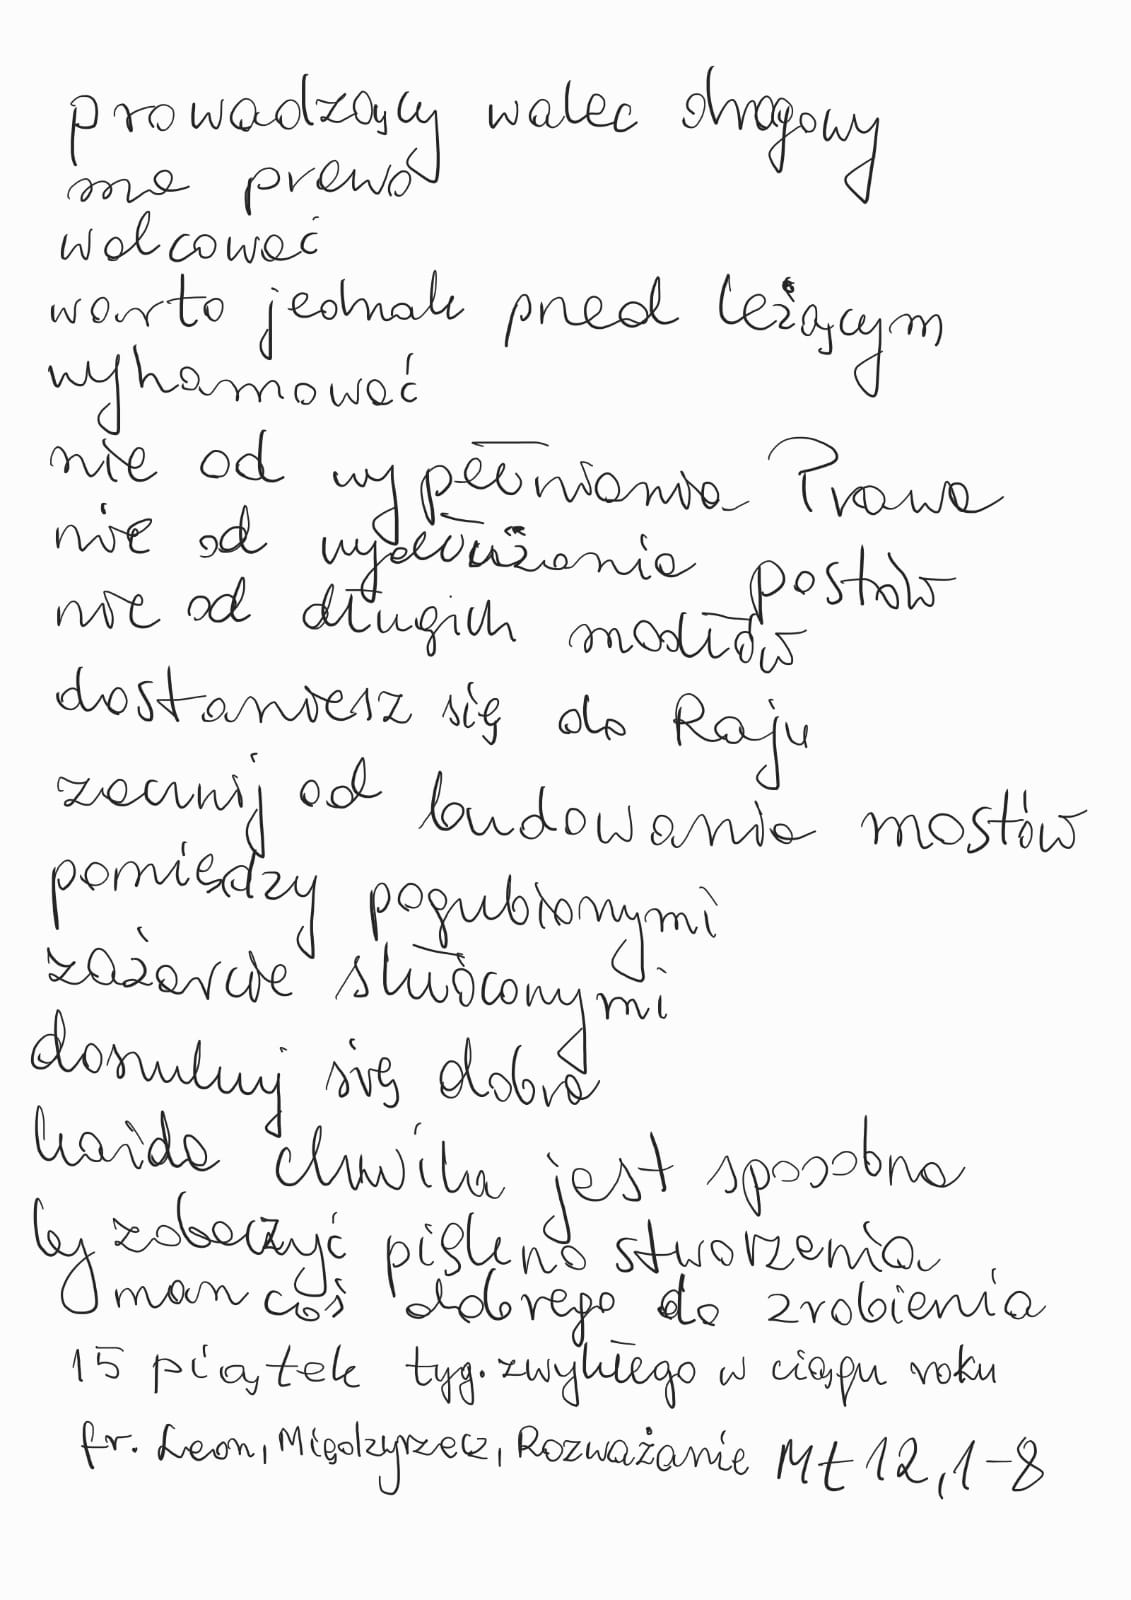 prowadzący walec drogowy
ma prawo
walcować
warto jednak przed leżącym
wyhamować
nie od wypełniania Prawa
nie od wydłużania postów
nie od długich modłów
dostaniesz się do Raju
zacznij od budowania mostów
pomiędzy pogubionymi
zażarcie skłóconymi
doszukuj się dobra
każda chwila jest sposobna
by zobaczyć piękno stworzenia
masz coś dobrego do zrobienia
15 piątek tyg. zwykłego w ciągu roku
fr. Leon, Międzyrzecz, Rozważanie Mt 12, 1-8